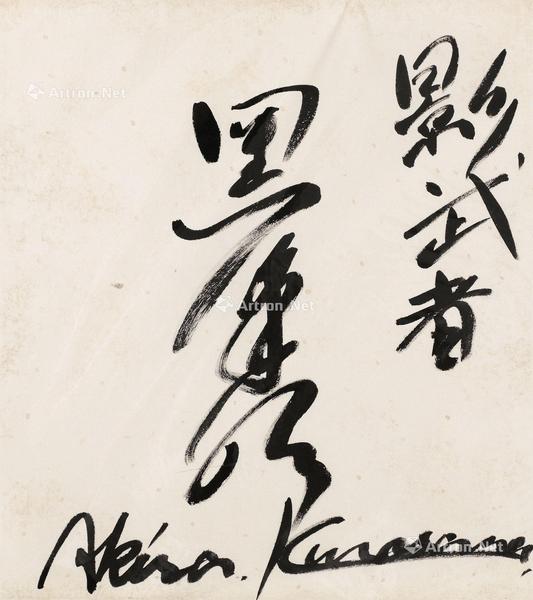 影武者
黒澤明
Akira. Kurosawa.
Artron.Net
Artron.Net
Artron.Net